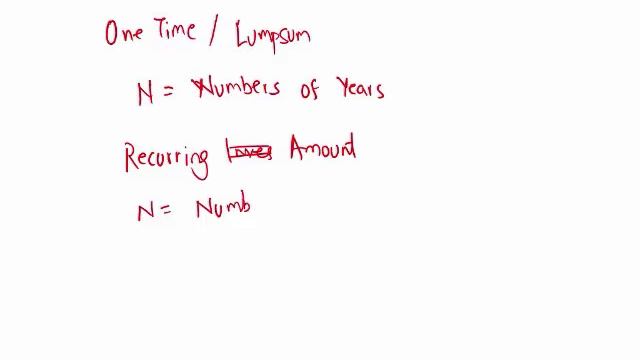 One Time / Lumpsum
N = Numbers of Years
Recurring Amount
N = Numb